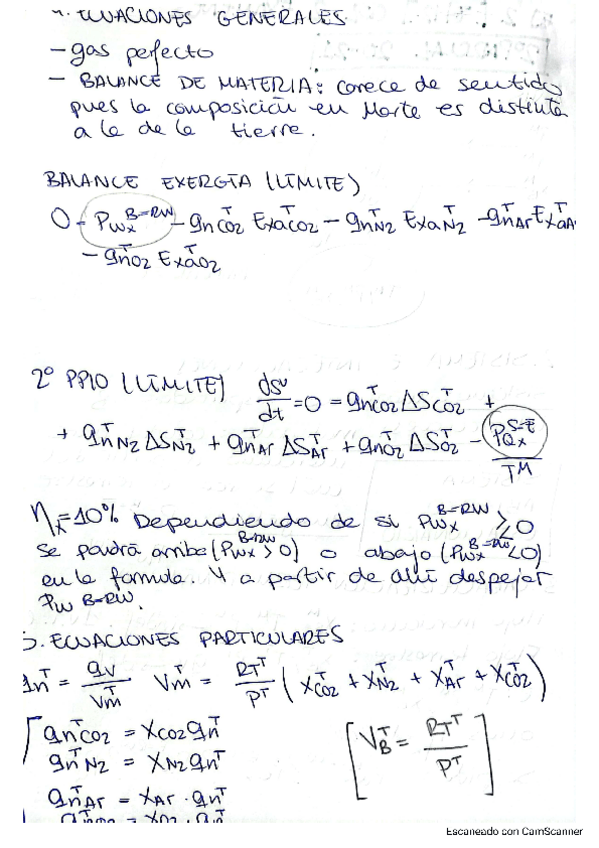 4. ECUACIONES GENERALES
- gas perfecto
- BALANCE DE MATERIA: carece de sentido
pues la composición en Marte es distinta
a la de la tierra.
BALANCE EXERGÍA (LÍMITE)
0 - Pwx^B=RW - qn^T CO2 Exa^T CO2 - qn^T N2 Exa^T N2 - qn^T Ar Exa^T Ar
- qn^T O2 Exa^T O2
2º PPIO (LÍMITE) dS^v/dt = 0 = qn^T CO2 ΔS^T CO2 +
+ qn^T N2 ΔS^T N2 + qn^T Ar ΔS^T Ar + qn^T O2 ΔS^T O2 - PQx^S-E / T^M
ηx = 10% Dependiendo de si Pwx^B=RW ≷ 0
se pondrá arriba (Pwx^B=RW > 0) o abajo (Pwx^B=RW < 0)
en la formula. Y a partir de ahí despejar
Pw B=RW.
5. ECUACIONES PARTICULARES
qn^T = qv / Vm^T Vm^T = RT^T / P^T (X^T CO2 + X^T N2 + X^T Ar + X^T CO2)
qn^T CO2 = XCO2 qn^T
qn^T N2 = XN2 qn^T
[V^T B = RT^T / P^T]
qn^T Ar = XAr · qn^T
Escaneado con CamScanner